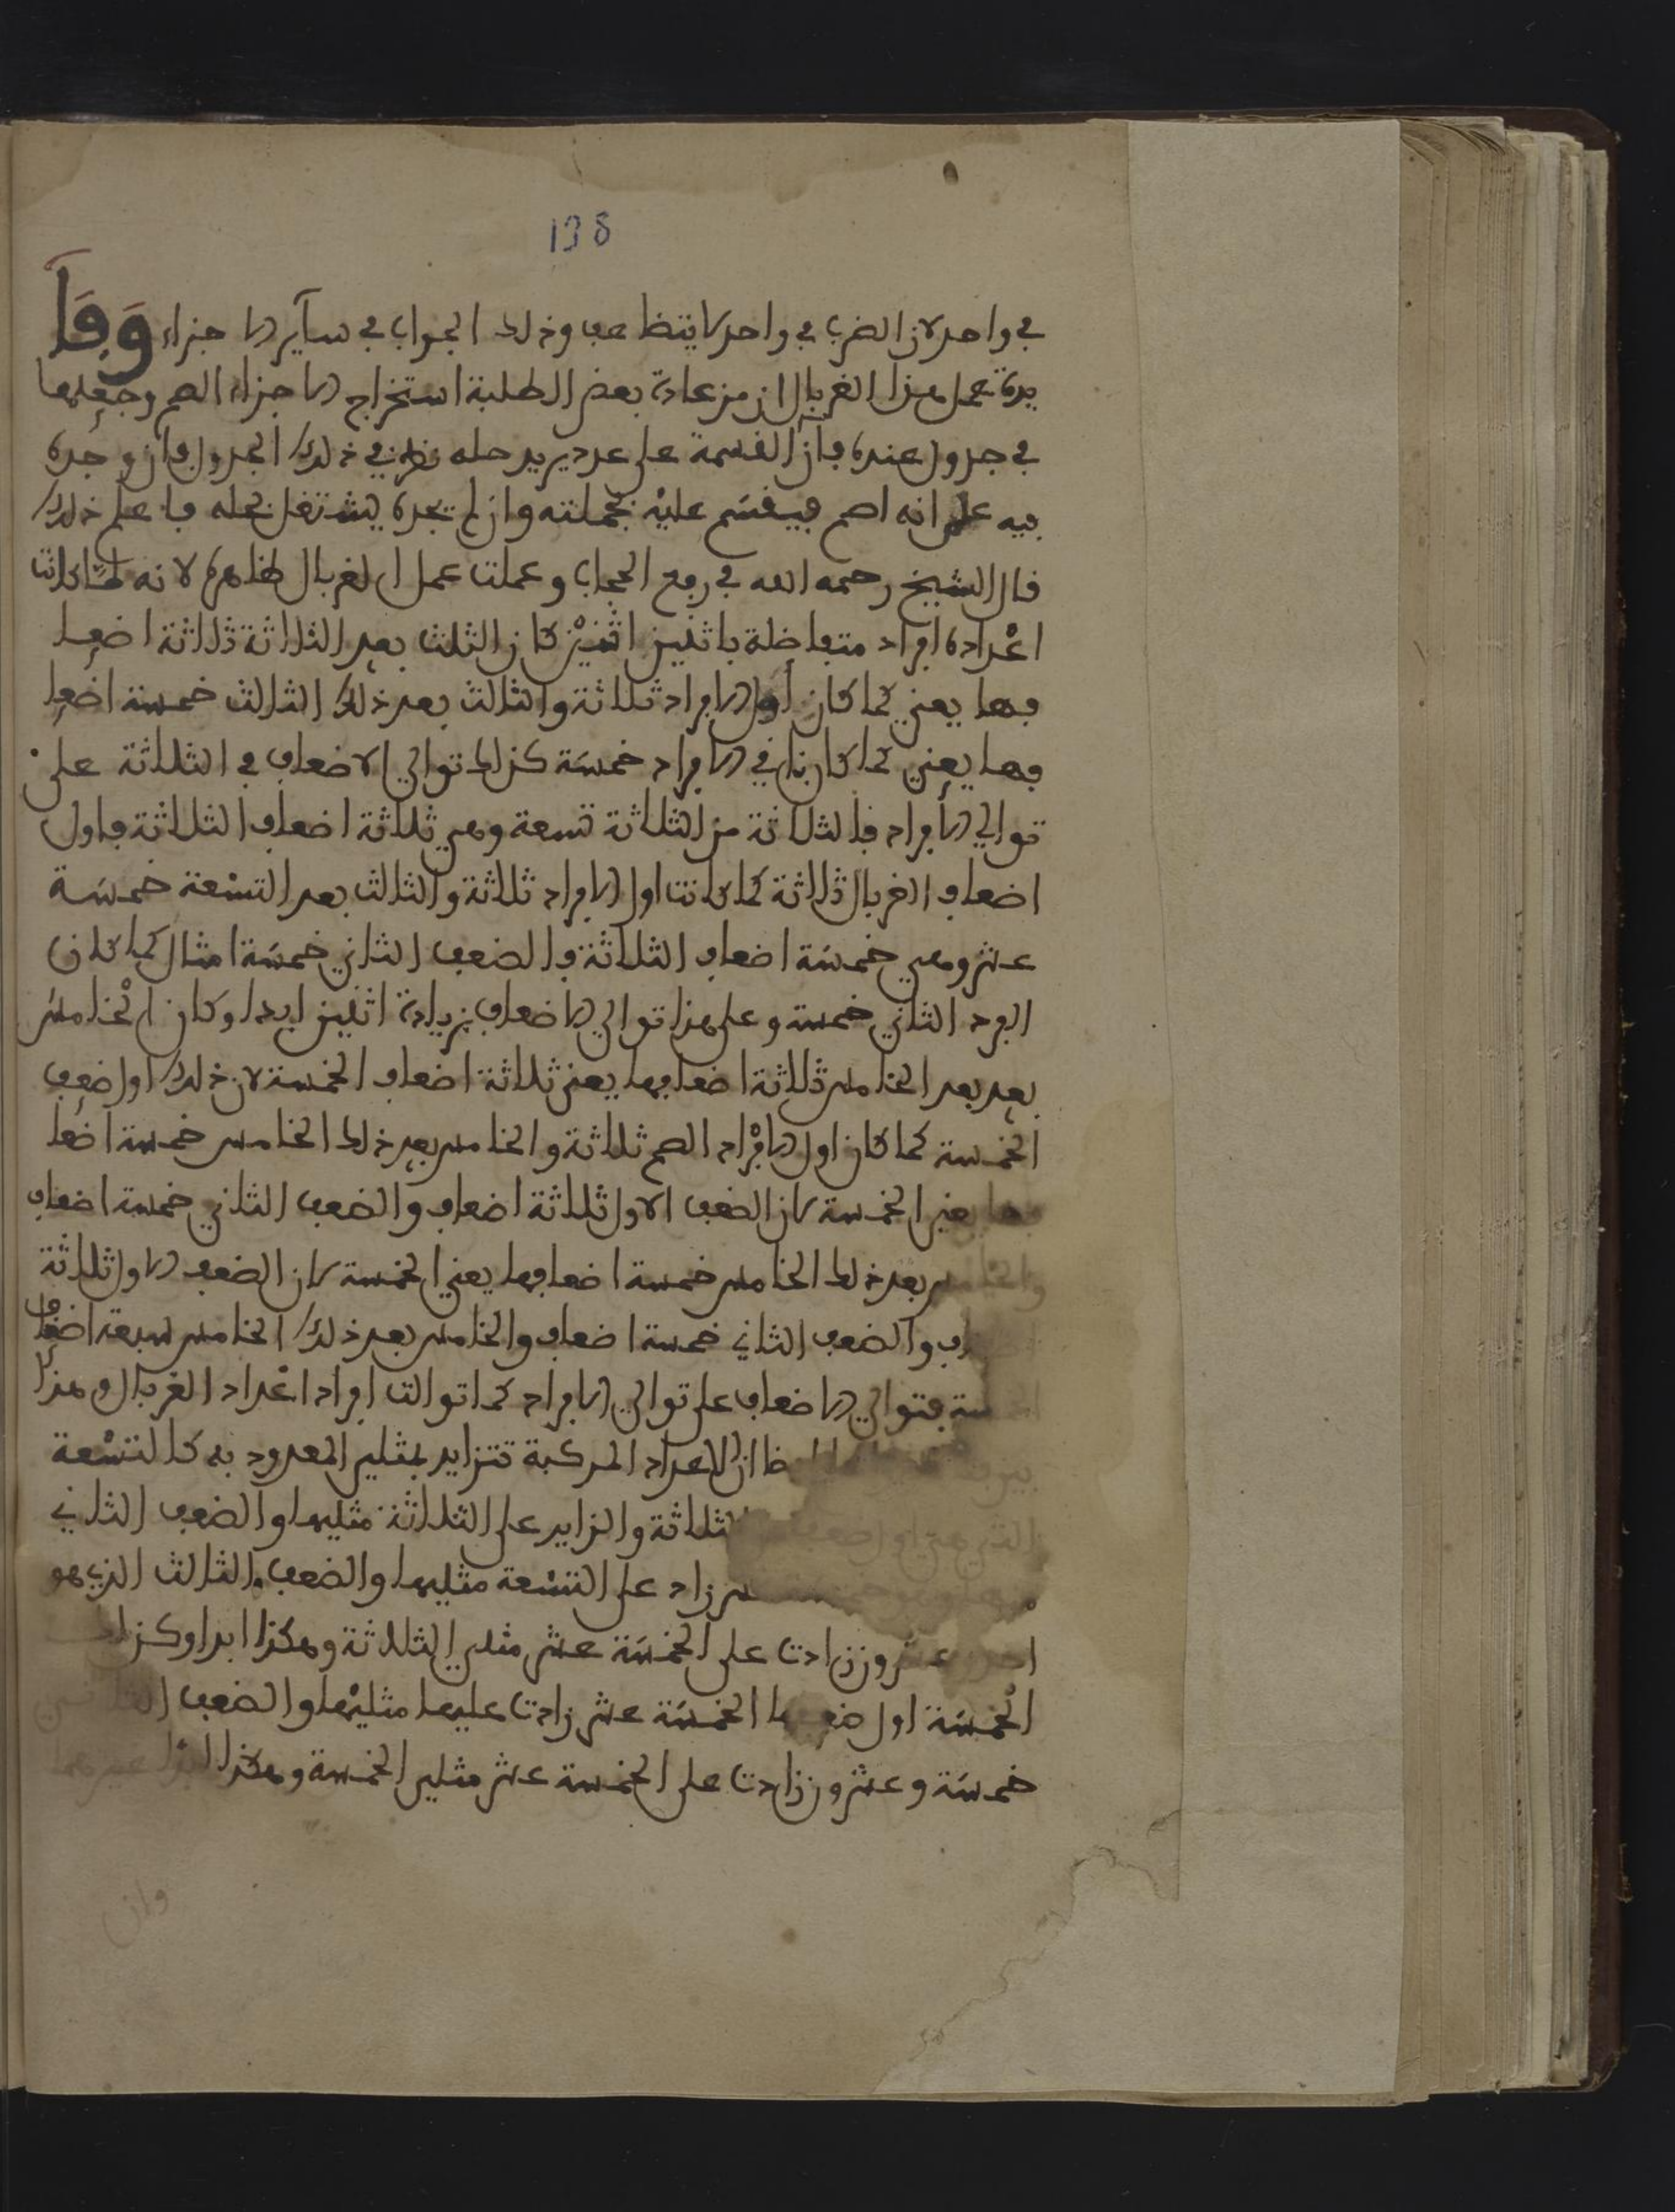 138
في واحد لان الضرب في واحد لا يتضاعف وذلك الجواب في سآير الاجزاء وَفَا
يدة عمل هذا الغربال ان من عادة بعض الطلبة استخراج الاجزاء الصم وجعلها
في جدول عنده فان القسمة على عدد يريد حله نظر في ذلك الجدول فان وجده
فيه علم انه اصم فيقسم عليه بجملته وان لم يجده يشتغل بحله فاعلم ذلك
قال الشيخ رحمه الله في رفع الحجاب وعملت عمل الغربال ظاهرة لانه لما كانت
اعداده افراد متفاضلة باثنين اثنين كان الثلث بعد الثلاثة ثلاثة اضعا
فها يعني كما كان اول الافراد ثلاثة والثالث بعد ذلك الثالث خمسة اضعا
فها يعني كما كان ثاني الافراد خمسة كذلك توالي الاضعاف في الثلاثة على
توالي الافراد فالثلاثة من الثلاثة تسعة وهي ثلاثة اضعاف الثلاثة فاول
اضعاف الغربال ثلاثة كما كانت اول الافراد ثلاثة والثالث بعد التسعة خمسة
عشر وهي خمسة اضعاف الثلاثة والضعف الثاني خمسة امثال كما كان
الفرد الثاني خمسة وعلى هذا توالي الاضعاف بزيادة اثنين ابدا وكان الخامس
بعد بعد الخامس ثلاثة اضعافها يعني ثلاثة اضعاف الخمسة لان ذلك اول ضعف
الخمسة كما كان اول الافراد الصم ثلاثة والخامس بعد ذلك الخامس خمسة اضعا
فها يعني الخمسة لان الضعف الاول ثلاثة اضعاف والضعف الثاني خمسة اضعاف
والخامس بعد ذلك الخامس خمسة اضعافها يعني الخمسة لان الضعف الاول ثلاثة
والضعف الثاني خمسة اضعاف والخامس بعد ذلك الخامس سبعة اضعاف
فتوالي الاضعاف على توالي الافراد كما توالت افراد اعداد الغربال وهذا
ان الاعداد المركبة تتزايد بمثلي المعدود به كالتسعة
الثلاثة والزايد على الثلاثة مثليها والضعف الثاني
زاد على التسعة مثليها والضعف الثالث الذي هو
احد وعشرون زادت على الخمسة عشر مثلي الثلاثة وهكذا ابدا وكذلك
الخمسة اول ضعفها الخمسة عشر زادت عليها مثليها والضعف الثاني
خمسة وعشرون زادت على الخمسة عشر مثلي الخمسة وهكذا
وان